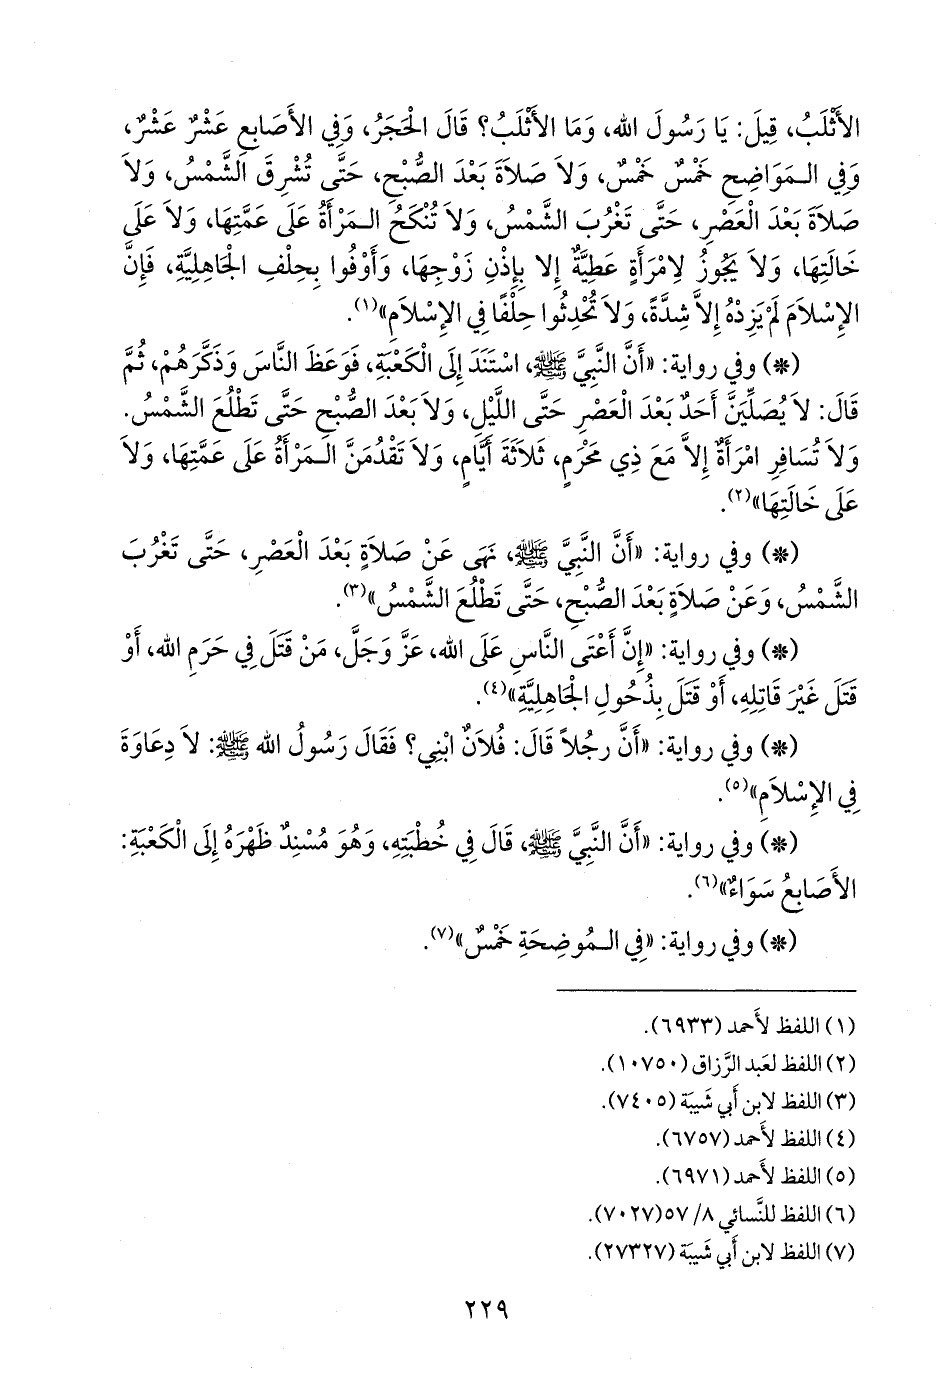 الأَثْلَبُ، قِيلَ: يَا رَسُولَ الله، وَمَا الأَثْلَبُ؟ قَالَ الْحَجَرُ، وَفِي الأَصَابِعِ عَشْرٌ عَشْرٌ،
وَفِي الـمَوَاضِحِ خَمْسٌ خَمْسٌ، وَلاَ صَلاَةَ بَعْدَ الصُّبْحِ، حَتَّى تُشْرِقَ الشَّمْسُ، وَلاَ
صَلاَةَ بَعْدَ الْعَصْرِ، حَتَّى تَغْرُبَ الشَّمْسُ، وَلاَ تُنْكَحُ الـمَرْأَةُ عَلَى عَمَّتِهَا، وَلاَ عَلَى
خَالَتِهَا، وَلاَ يَجُوزُ لاِمْرَأَةٍ عَطِيَّةٌ إِلا بِإِذْنِ زَوْجِهَا، وَأَوْفُوا بِحِلْفِ الْجَاهِلِيَّةِ، فَإِنَّ
الإِسْلاَمَ لَمْ يَزِدْهُ إِلاَّ شِدَّةً، وَلاَ تُحْدِثُوا حِلْفًا فِي الإِسْلاَمِ»(١).
(*) وفي رواية: «أَنَّ النَّبِيَّ ﷺ، اسْتَنَدَ إِلَى الْكَعْبَةِ، فَوَعَظَ النَّاسَ وَذَكَّرَهُمْ، ثُمَّ
قَالَ: لاَ يُصَلِّيَنَّ أَحَدٌ بَعْدَ الْعَصْرِ حَتَّى اللَّيْلِ، وَلاَ بَعْدَ الصُّبْحِ حَتَّى تَطْلُعَ الشَّمْسُ.
وَلاَ تُسَافِرِ امْرَأَةٌ إِلاَّ مَعَ ذِي مَحْرَمٍ، ثَلاَثَةَ أَيَّامٍ، وَلاَ تَقْدُمَنَّ الـمَرْأَةُ عَلَى عَمَّتِهَا، وَلاَ
عَلَى خَالَتِهَا»(٢).
(*) وفي رواية: «أَنَّ النَّبِيَّ ﷺ، نَهَى عَنْ صَلاَةٍ بَعْدَ الْعَصْرِ، حَتَّى تَغْرُبَ
الشَّمْسُ، وَعَنْ صَلاَةٍ بَعْدَ الصُّبْحِ، حَتَّى تَطْلُعَ الشَّمْسُ»(٣).
(*) وفي رواية: «إِنَّ أَعْتَى النَّاسِ عَلَى الله، عَزَّ وَجَلَّ، مَنْ قَتَلَ فِي حَرَمِ الله، أَوْ
قَتَلَ غَيْرَ قَاتِلِهِ، أَوْ قَتَلَ بِذُحُولِ الْجَاهِلِيَّةِ»(٤).
(*) وفي رواية: «أَنَّ رَجُلاً قَالَ: فُلاَنٌ ابْنِي؟ فَقَالَ رَسُولُ الله ﷺ: لاَ دِعَاوَةَ
فِي الإِسْلاَمِ»(٥).
(*) وفي رواية: «أَنَّ النَّبِيَّ ﷺ، قَالَ فِي خُطْبَتِهِ، وَهُوَ مُسْنِدٌ ظَهْرَهُ إِلَى الْكَعْبَةِ:
الأَصَابِعُ سَوَاءٌ»(٦).
(*) وفي رواية: «فِي الـمُوضِحَةِ خَمْسٌ»(٧).
(١) اللفظ لأَحمد (٦٩٣٣).
(٢) اللفظ لعَبد الرَّزاق (١٠٧٥٠).
(٣) اللفظ لابن أَبي شَيبَة (٧٤٠٥).
(٤) اللفظ لأَحمد (٦٧٥٧).
(٥) اللفظ لأَحمد (٦٩٧١).
(٦) اللفظ للنَّسائي ٨/ ٥٧(٧٠٢٧).
(٧) اللفظ لابن أَبي شَيبَة (٢٧٣٢٧).
٢٢٩